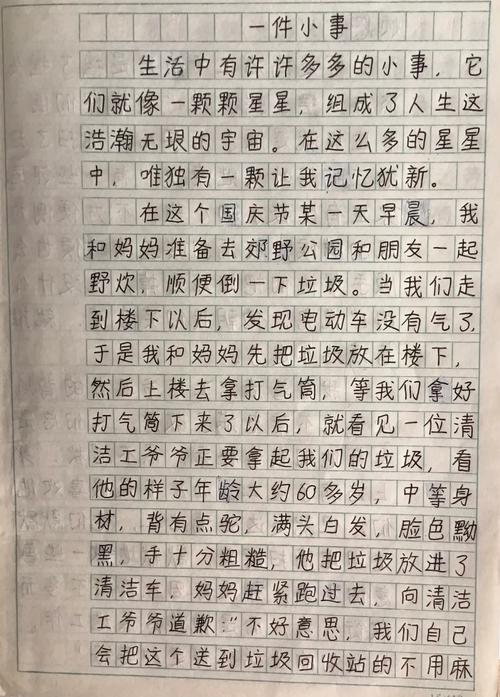 一件小事
生活中有许许多多的小事，它
们就像一颗颗星星，组成了人生这
浩瀚无垠的宇宙。在这么多的星星
中，唯独有一颗让我记忆犹新。
在这个国庆节某一天早晨，我
和妈妈准备去郊野公园和朋友一起
野炊，顺便倒一下垃圾。当我们走
到楼下以后，发现电动车没有气了，
于是我和妈妈先把垃圾放在楼下，
然后上楼去拿打气筒，等我们拿好
打气筒下来了以后，就看见一位清
洁工爷爷正要拿起我们的垃圾，看
他的样子年龄大约60多岁，中等身
材，背有点驼，满头白发，脸色黝
黑，手十分粗糙，他把垃圾放进了
清洁车，妈妈赶紧跑过去，向清洁
工爷爷道歉：“不好意思，我们自己
会把这个送到垃圾回收站的不用麻